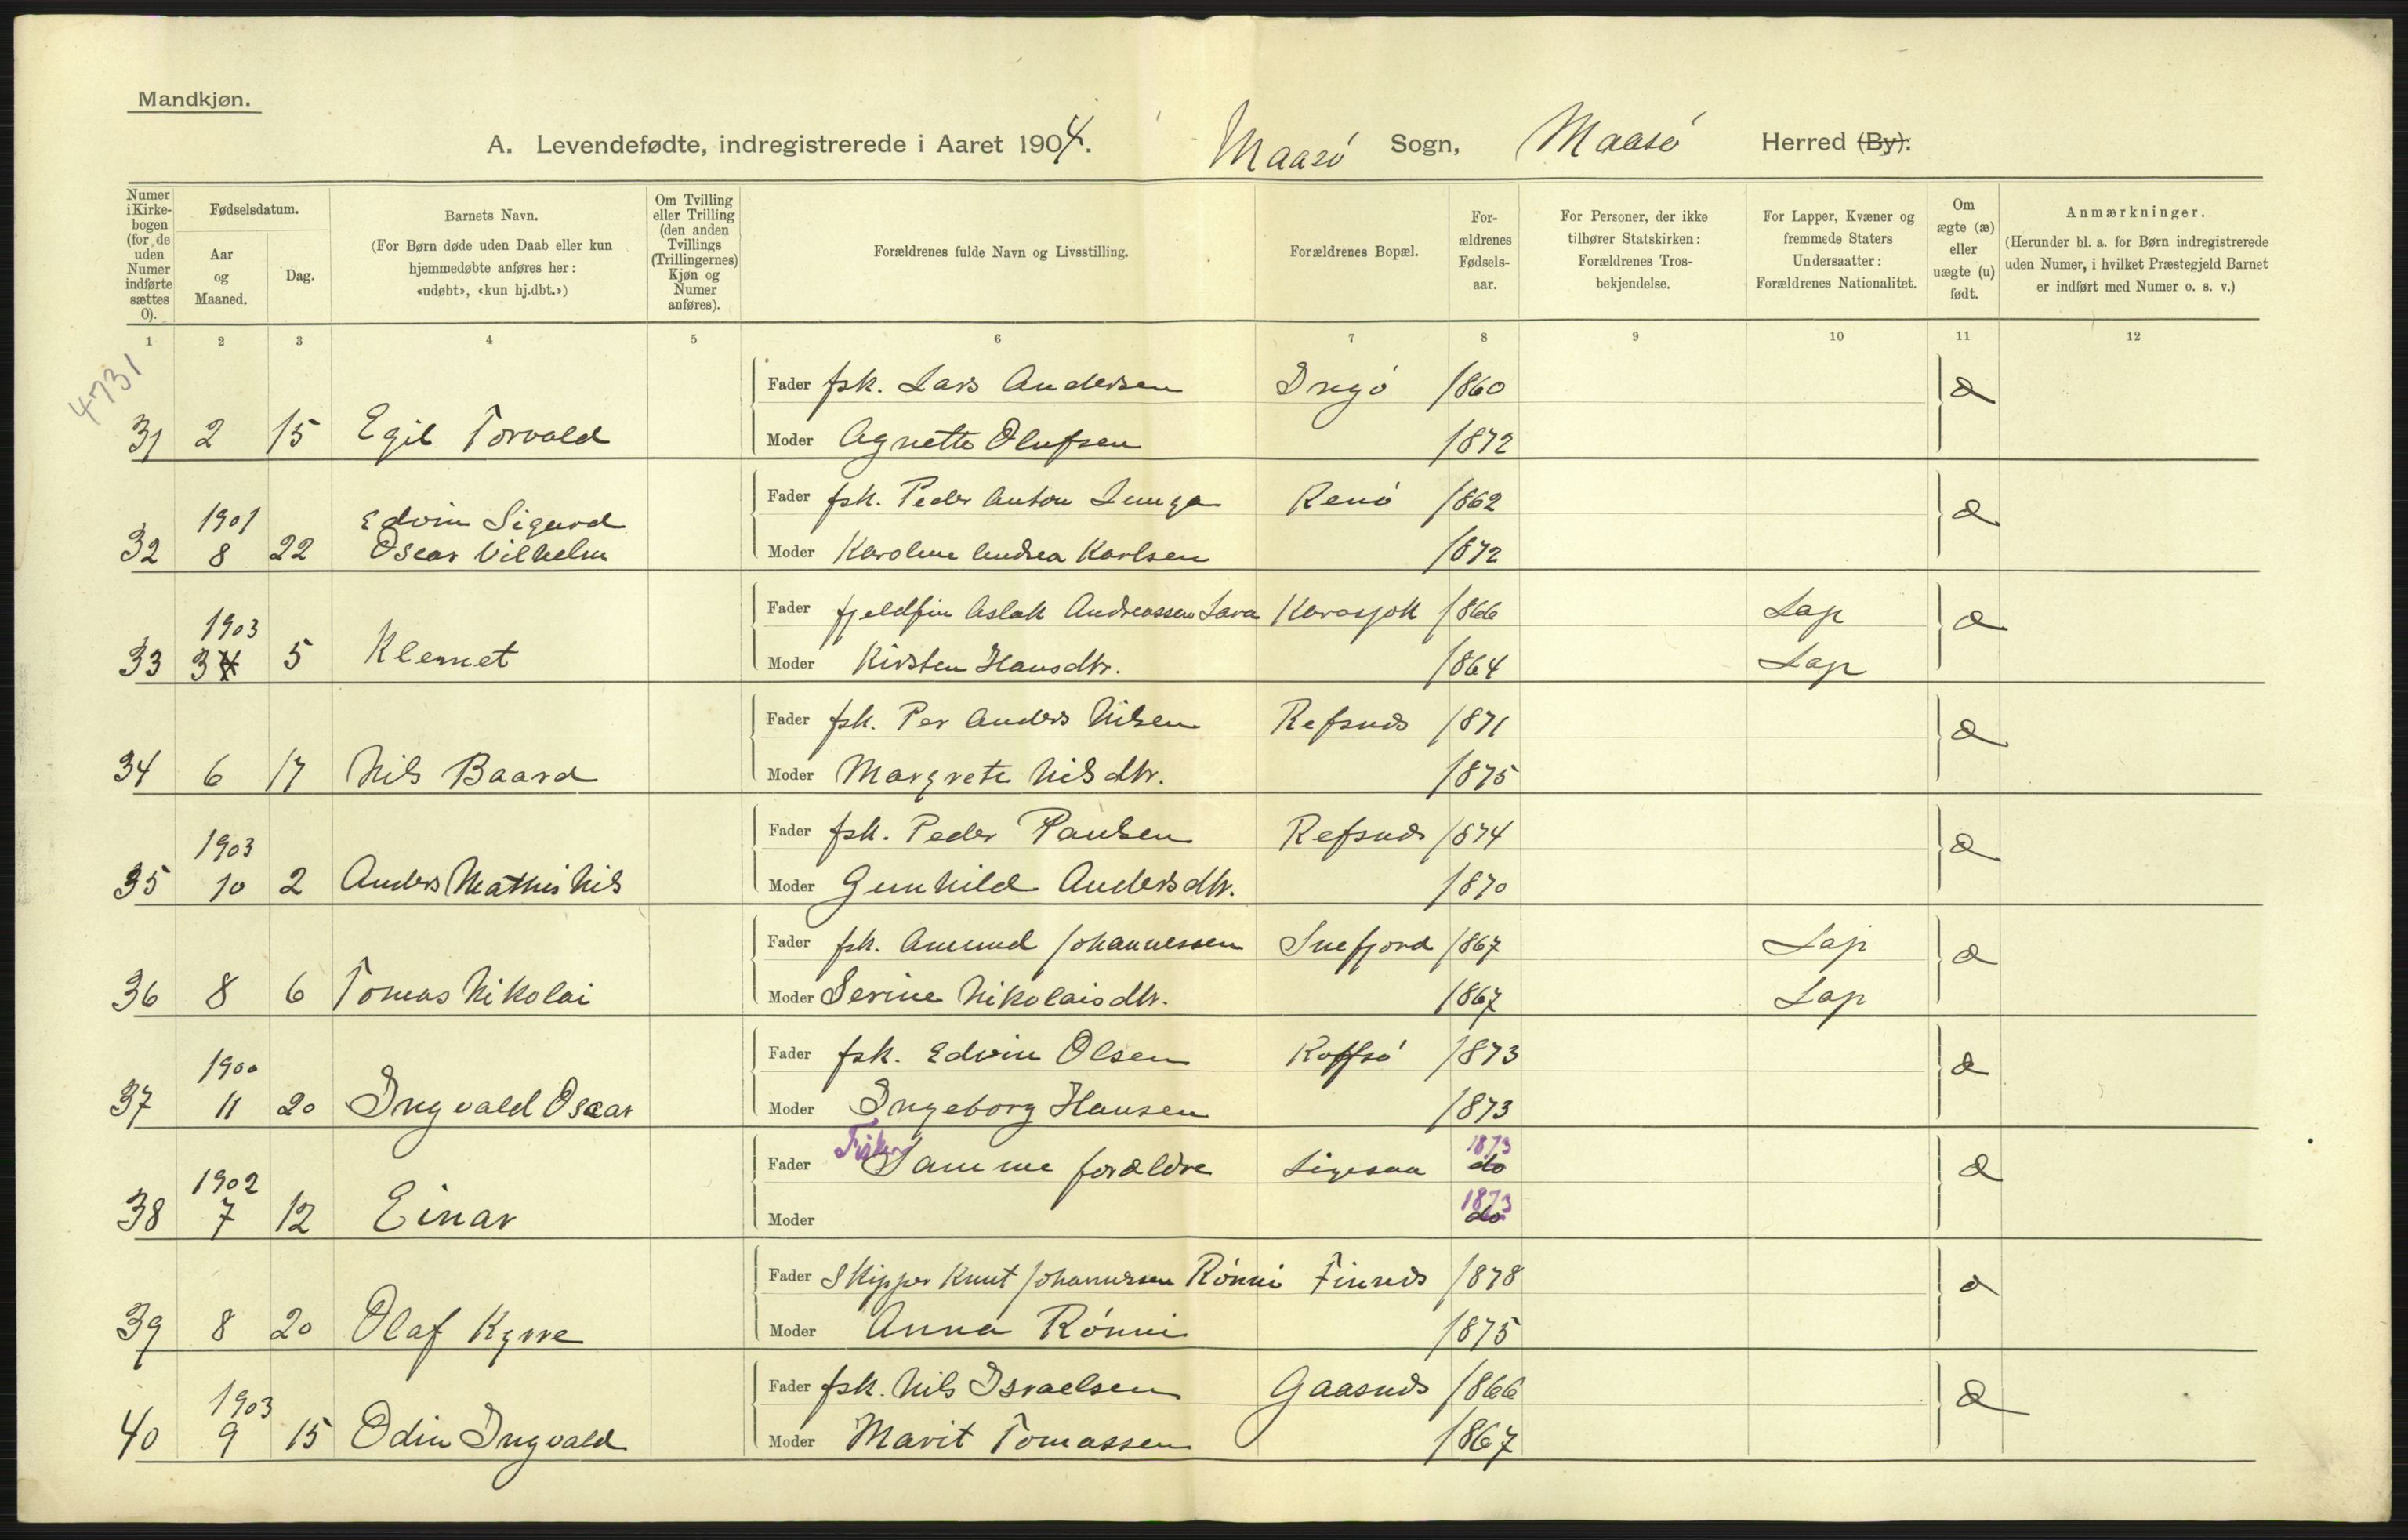 Mandkjøn.
A. Levendefødte, indregistrerede i Aaret 1904. Maasø Sogn, Maasø Herred (By).
Numer i Kirkebogen (for de uden Numer indførte sættes 0).
Fødselsdatum.
Aar og Maaned.
Dag.
Barnets Navn.
(For Børn døde uden Daab eller kun hjemmedøbte anføres her: «udøbt», «kun hj.dbt.»)
Om Tvilling eller Trilling (den anden Tvillings (Trillingernes) Kjøn og Numer anføres).
Forældrenes fulde Navn og Livsstilling.
Forældrenes Bopæl.
Forældrenes Fødselsaar.
For Personer, der ikke tilhører Statskirken: Forældrenes Trosbekjendelse.
For Lapper, Kvæner og fremmede Staters Undersaatter: Forældrenes Nationalitet.
Om ægte (æ) eller uægte (u) født.
Anmærkninger.
(Herunder bl. a. for Børn indregistrerede uden Numer, i hvilket Præstegjeld Barnet er indført med Numer o. s. v.)
1 2 3 4 5 6 7 8 9 10 11 12
4731
Fader fsk. Lars Andersen Ingø 1860 æ
31 2 15 Egil Torvald Moder Agnette Olufsen 1872
Fader fsk. Peder Anton Renø 1862 æ
1901 Edvin Sigurd
32 8 22 Oscar Vilhelm Moder Karoline Andrea Karlsen 1872
Fader fjeldfin Aslak Andreassen Sara Karasjok 1866 Lap æ
1903
33 3 4 5 Klemet Moder Kirsten Hansdtr. 1864 Lap
Fader fsk. Per Anders Nilsen Refsnds 1871 æ
34 6 17 Nils Baard Moder Margrete Nilsdtr. 1875
Fader fsk. Peder Paulsen Refsnds 1874 æ
1903
35 10 2 Anders Mathis Nils Moder Gunhild Andersdtr. 1870
Fader fsk. Amund Johannessen Snefjord 1867 Lap æ
36 8 6 Tomas Nikolai Moder Serine Nikolaisdtr. 1867 Lap
Fader fsk. Edvin Olsen Rolfsø 1873 æ
1900
37 11 20 Ingvald Oscar Moder Ingeborg Hansen 1873
Fader Fisker Samme forældre Ligesaa do 1873 æ
1902
38 7 12 Einar Moder do 1873
Fader Skipper Knut Johannessen Rønni Finnds 1878 æ
39 8 20 Olaf Kyrre Moder Anna Rønni 1875
Fader fsk. Nils Israelsen Gaasnds 1866 æ
1903
40 9 15 Odin Ingvald Moder Marit Tomassen 1867